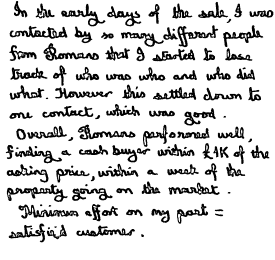 In the early days of the sale, I was
contacted by so many different people
from Romans that I started to lose
track of who was who and who did
what. However this settled down to
one contact, which was good.
Overall, Romans performed well,
finding a cash buyer within £1K of the
asking price, within a week of the
property going on the market.
Minimum effort on my part =
satisfied customer.